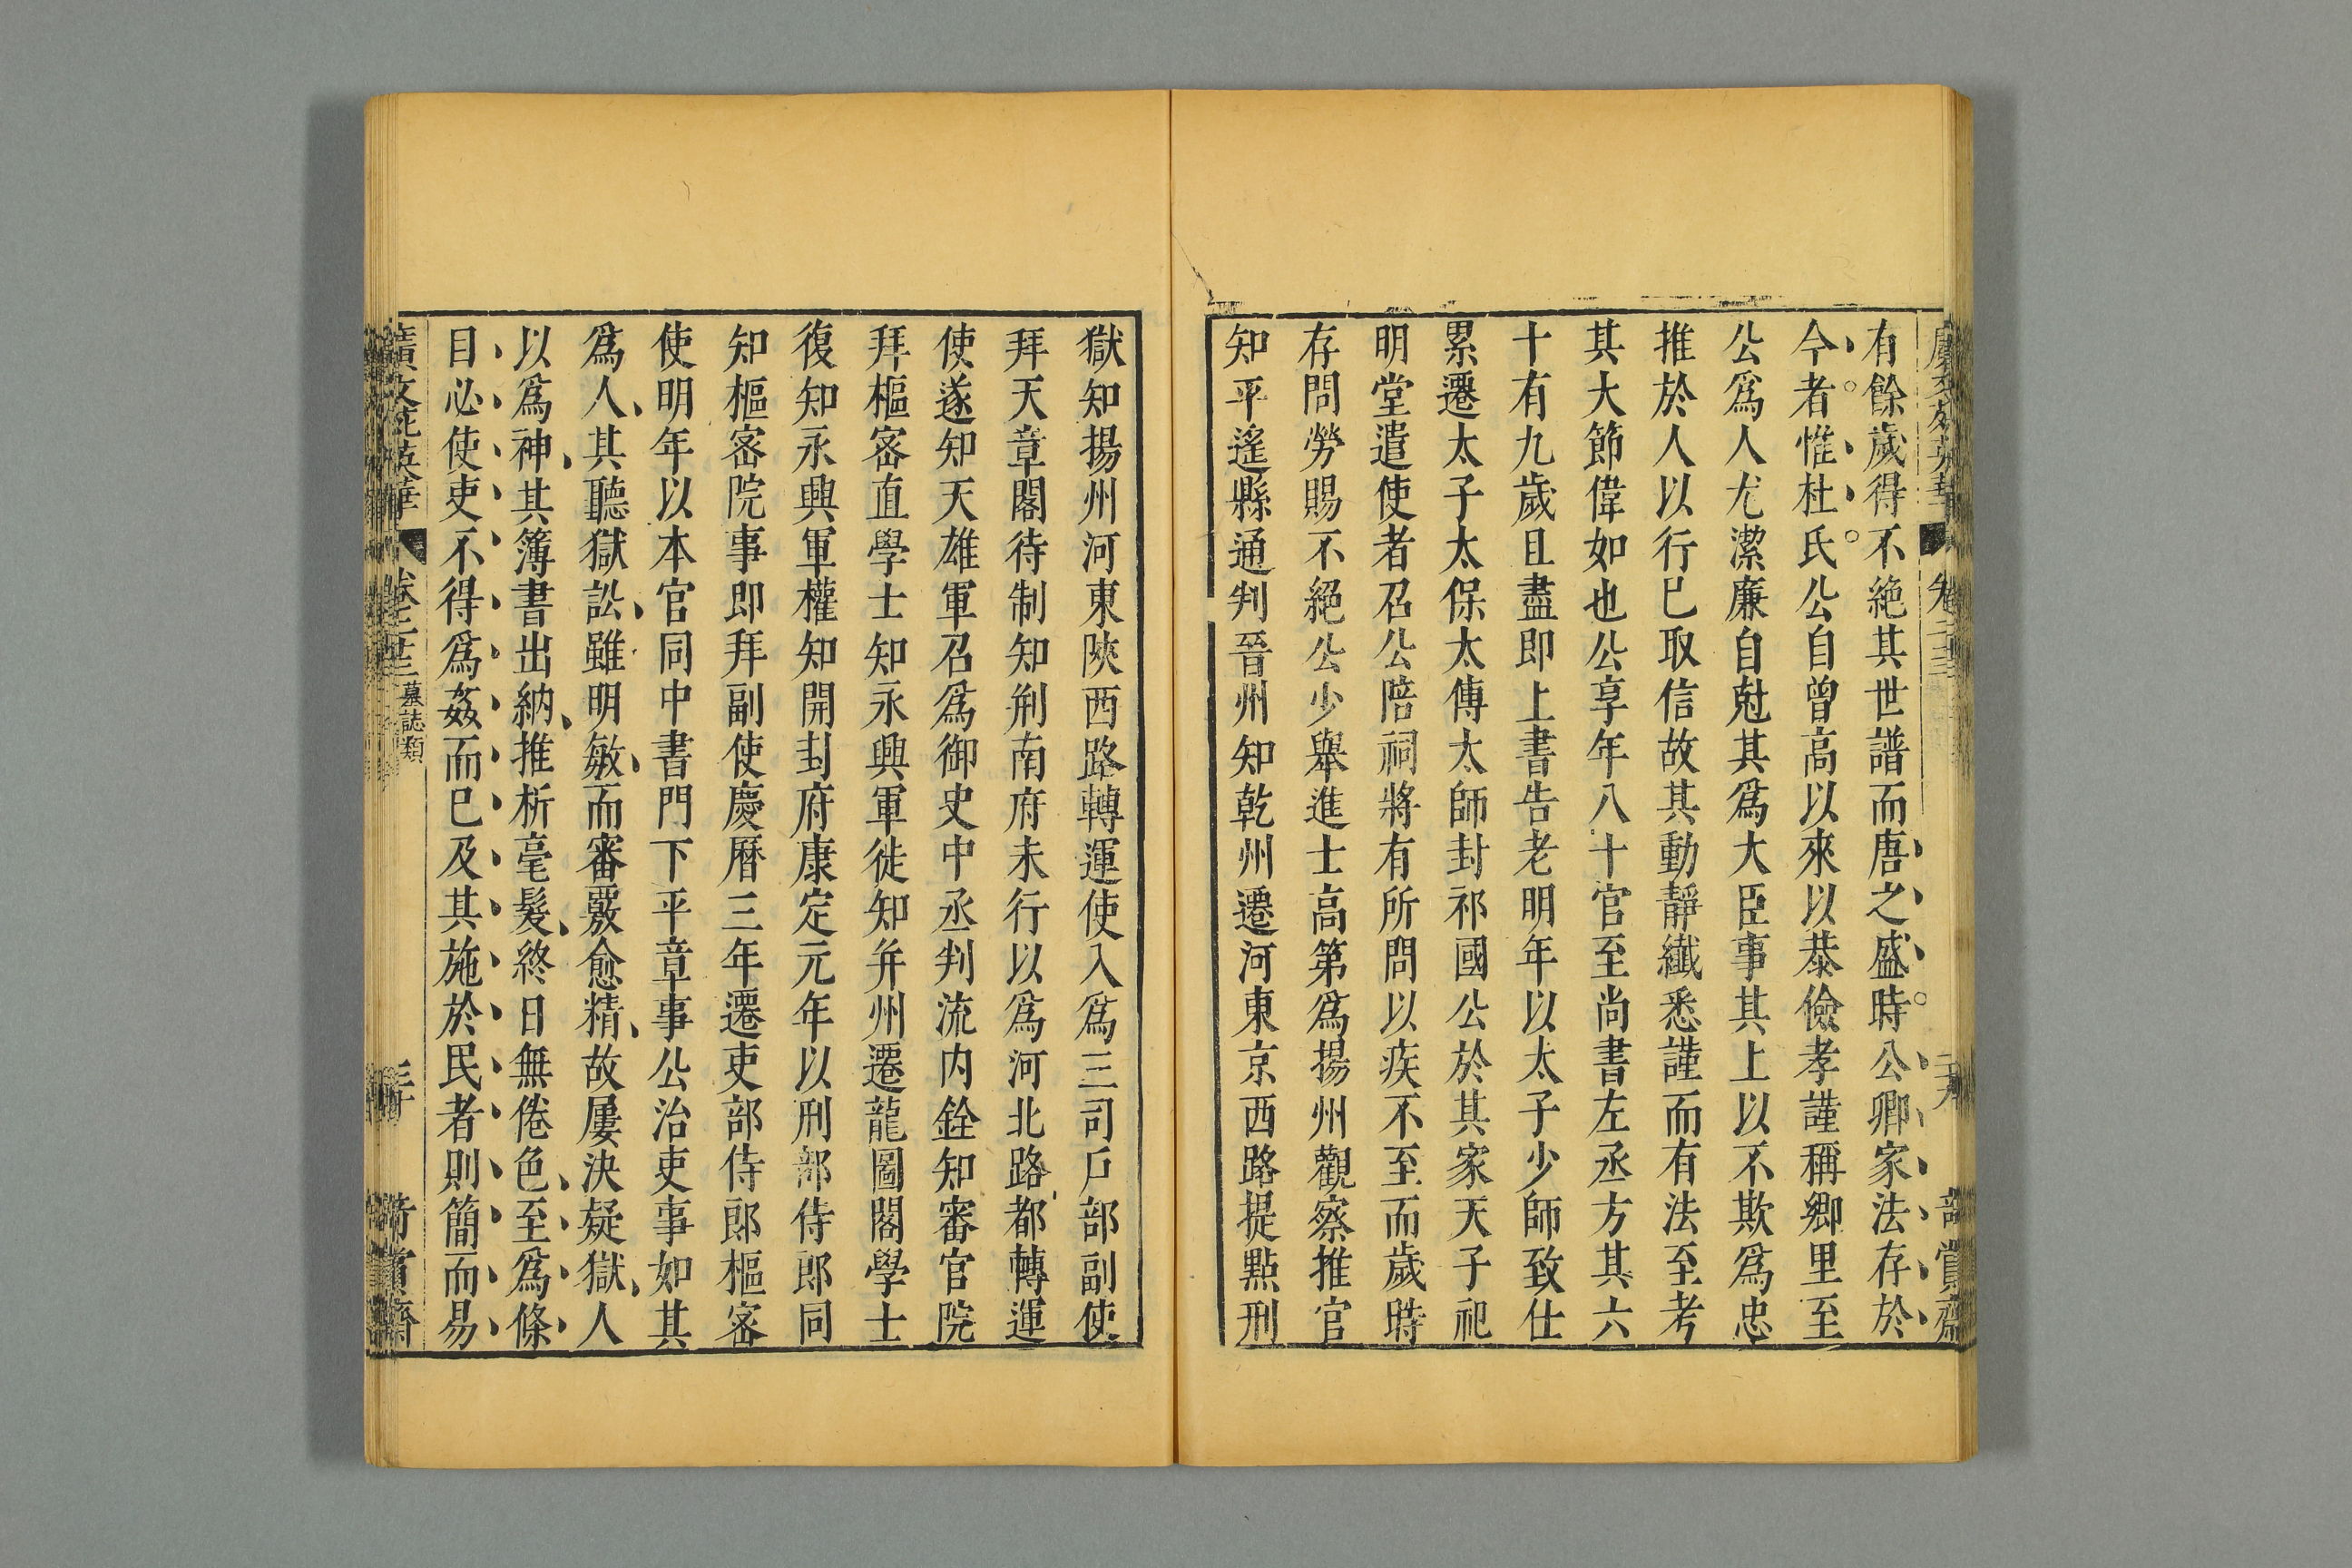 有餘歲得不絕其世譜而唐之盛時公卿家法存於
今者惟杜氏公自曾高以來以恭儉孝謹稱鄉里至
公爲人尤潔廉自尅其爲大臣事其上以不欺爲忠
推於人以行已取信故其動靜纖悉謹而有法至考
其大節偉如也公享年八十官至尚書左丞方其六
十有九歲且盡即上書告老明年以太子少師致仕
累遷太子太保太傅太師封祁國公於其家天子祀
明堂遣使者召公陪祠將有所問以疾不至而歲時
存問勞賜不絕公少舉進士高第爲揚州觀察推官
知平遙縣通判晉州知乾州遷河東京西路提點刑
獄知揚州河東陝西路轉運使入爲三司戶部副使
拜天章閣待制知荊南府未行以爲河北路都轉運
使遂知天雄軍召爲御史中丞判流内銓知審官院
拜樞密直學士知永興軍徙知并州遷龍圖閣學士
復知永興軍權知開封府康定元年以刑部侍郎同
知樞密院事即拜副使慶曆三年遷吏部侍郎樞密
使明年以本官同中書門下平章事公治吏事如其
爲人其聽獄訟雖明敏而審覈愈精故屢決疑獄人
以爲神其簿書出納推析毫髮終日無倦色至爲條
目必使吏不得爲姦而已及其施於民者則簡而易
廣文苑英華 墓誌類 三十